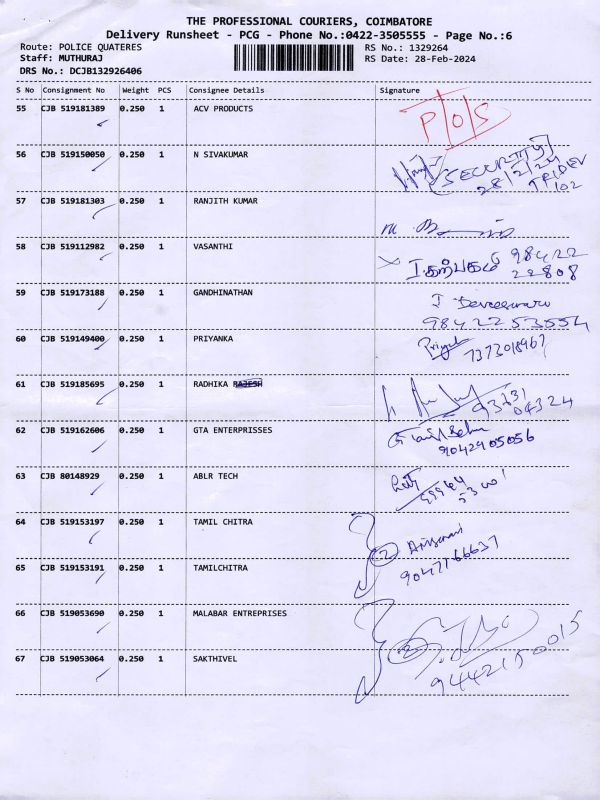 THE PROFESSIONAL COURIERS, COIMBATORE
Delivery Runsheet - PCG - Phone No.:0422-3505555 - Page No.:6
Route: POLICE QUATERES RS No.: 1329264
Staff: MUTHURAJ RS Date: 28-Feb-2024
DRS No.: DCJB132926406
S No Consignment No Weight PCS Consignee Details Signature
55 CJB 519181389 0.250 1 ACV PRODUCTS P/O/S
56 CJB 519150050 0.250 1 N SIVAKUMAR SECURITY
28/2/24 TRIDEV
102
57 CJB 519181303 0.250 1 RANJITH KUMAR
58 CJB 519112982 0.250 1 VASANTHI I கற்பகம் 98422
22808
59 CJB 519173188 0.250 1 GANDHINATHAN
9842253554
60 CJB 519149400 0.250 1 PRIYANKA Priyanka 7373018967
61 CJB 519185695 0.250 1 RADHIKA RAJESH 93631
04324
62 CJB 519162606 0.250 1 GTA ENTERPRISSES
9042905056
63 CJB 80148929 0.250 1 ABLR TECH
64 CJB 519153197 0.250 1 TAMIL CHITRA 2
9047766637
65 CJB 519153191 0.250 1 TAMILCHITRA
66 CJB 519053690 0.250 1 MALABAR ENTREPRISES 2
67 CJB 519053064 0.250 1 SAKTHIVEL 9442150015